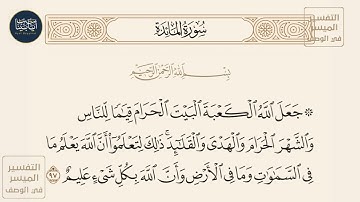 التفسير
الميسر
في الوصف
سُورَةُ المَائِدَةِ
بِسْمِ اللَّهِ الرَّحْمَٰنِ الرَّحِيمِ
۞ جَعَلَ ٱللَّهُ ٱلْكَعْبَةَ ٱلْبَيْتَ ٱلْحَرَامَ قِيَٰمًا لِّلنَّاسِ
وَٱلشَّهْرَ ٱلْحَرَامَ وَٱلْهَدْىَ وَٱلْقَلَٰٓئِدَ ۚ ذَٰلِكَ لِتَعْلَمُوٓا۟ أَنَّ ٱللَّهَ يَعْلَمُ مَا
فِى ٱلسَّمَٰوَٰتِ وَمَا فِى ٱلْأَرْضِ وَأَنَّ ٱللَّهَ بِكُلِّ شَىْءٍ عَلِيمٌ ٩٧
التفسير
الميسر
في الوصف